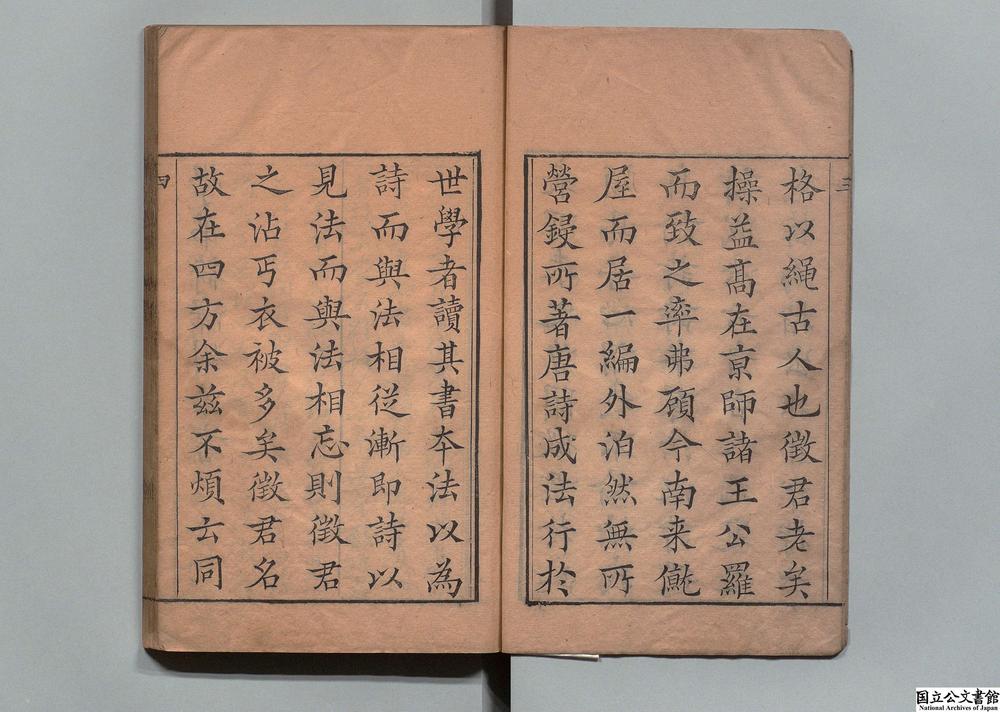 三
格以繩古人也徵君老矣
操益髙在亰師諸王公羅
而致之率弗顧今南来僦
屋而居一編外泊然無所
營鋟所著唐詩成法行於
世學者讀其書夲法以為
詩而與法相從漸即詩以
見法而與法相忘則徵君
之沾丐衣被多矣徵君名
故在四方余兹不煩云同
四
国立公文書館
National Archives of Japan